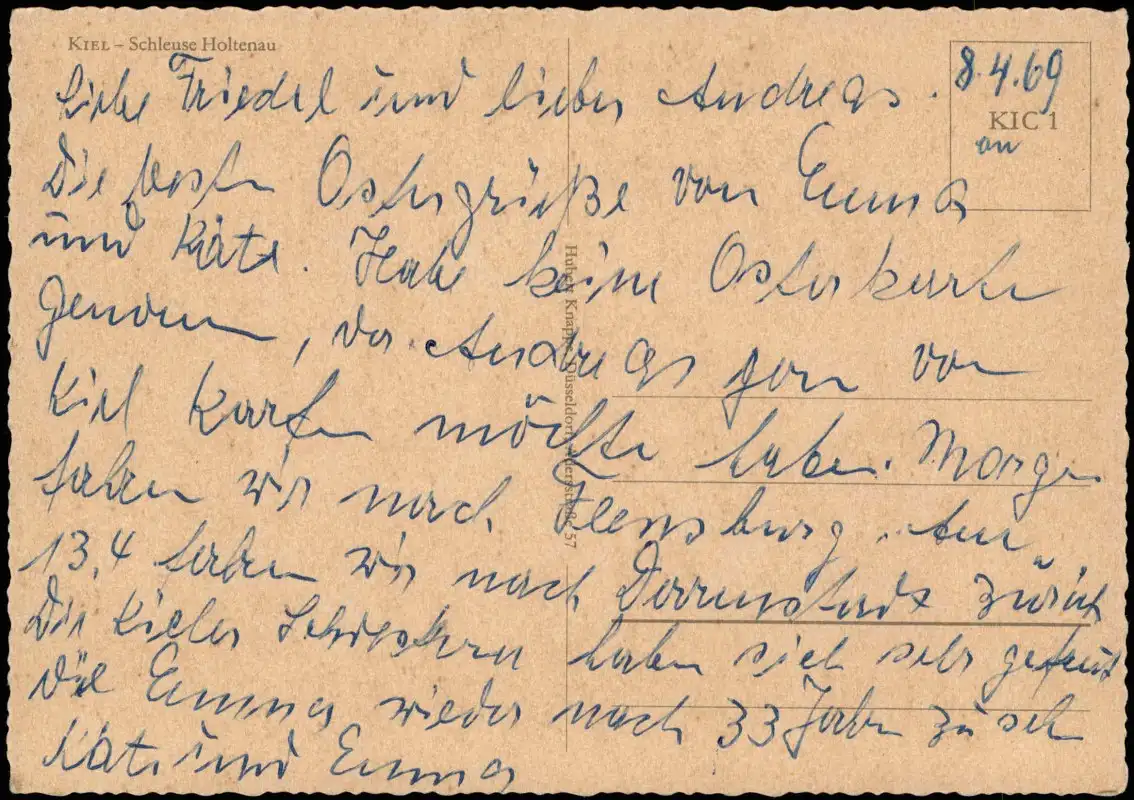 KIEL – Schleuse Holtenau
8.4.69
KIC 1
an
Liebe Friedel und lieber Andreas.
Die besten Ostergrüße von Emma
und Käte. Habe keine Osterkarte
genommen, da Andreas gern von
Kiel Karten möchte haben. Morgen
fahren wir nach Flensburg. Am
13.4 fahren wir nach Darmstadt zurück
Die Kieler Schwestern haben sich sehr gefreut
die Emma wieder nach 33 Jahren zu sehn
Käte und Emma
Hubert Knappe, Düsseldorf, Adersstraße 57